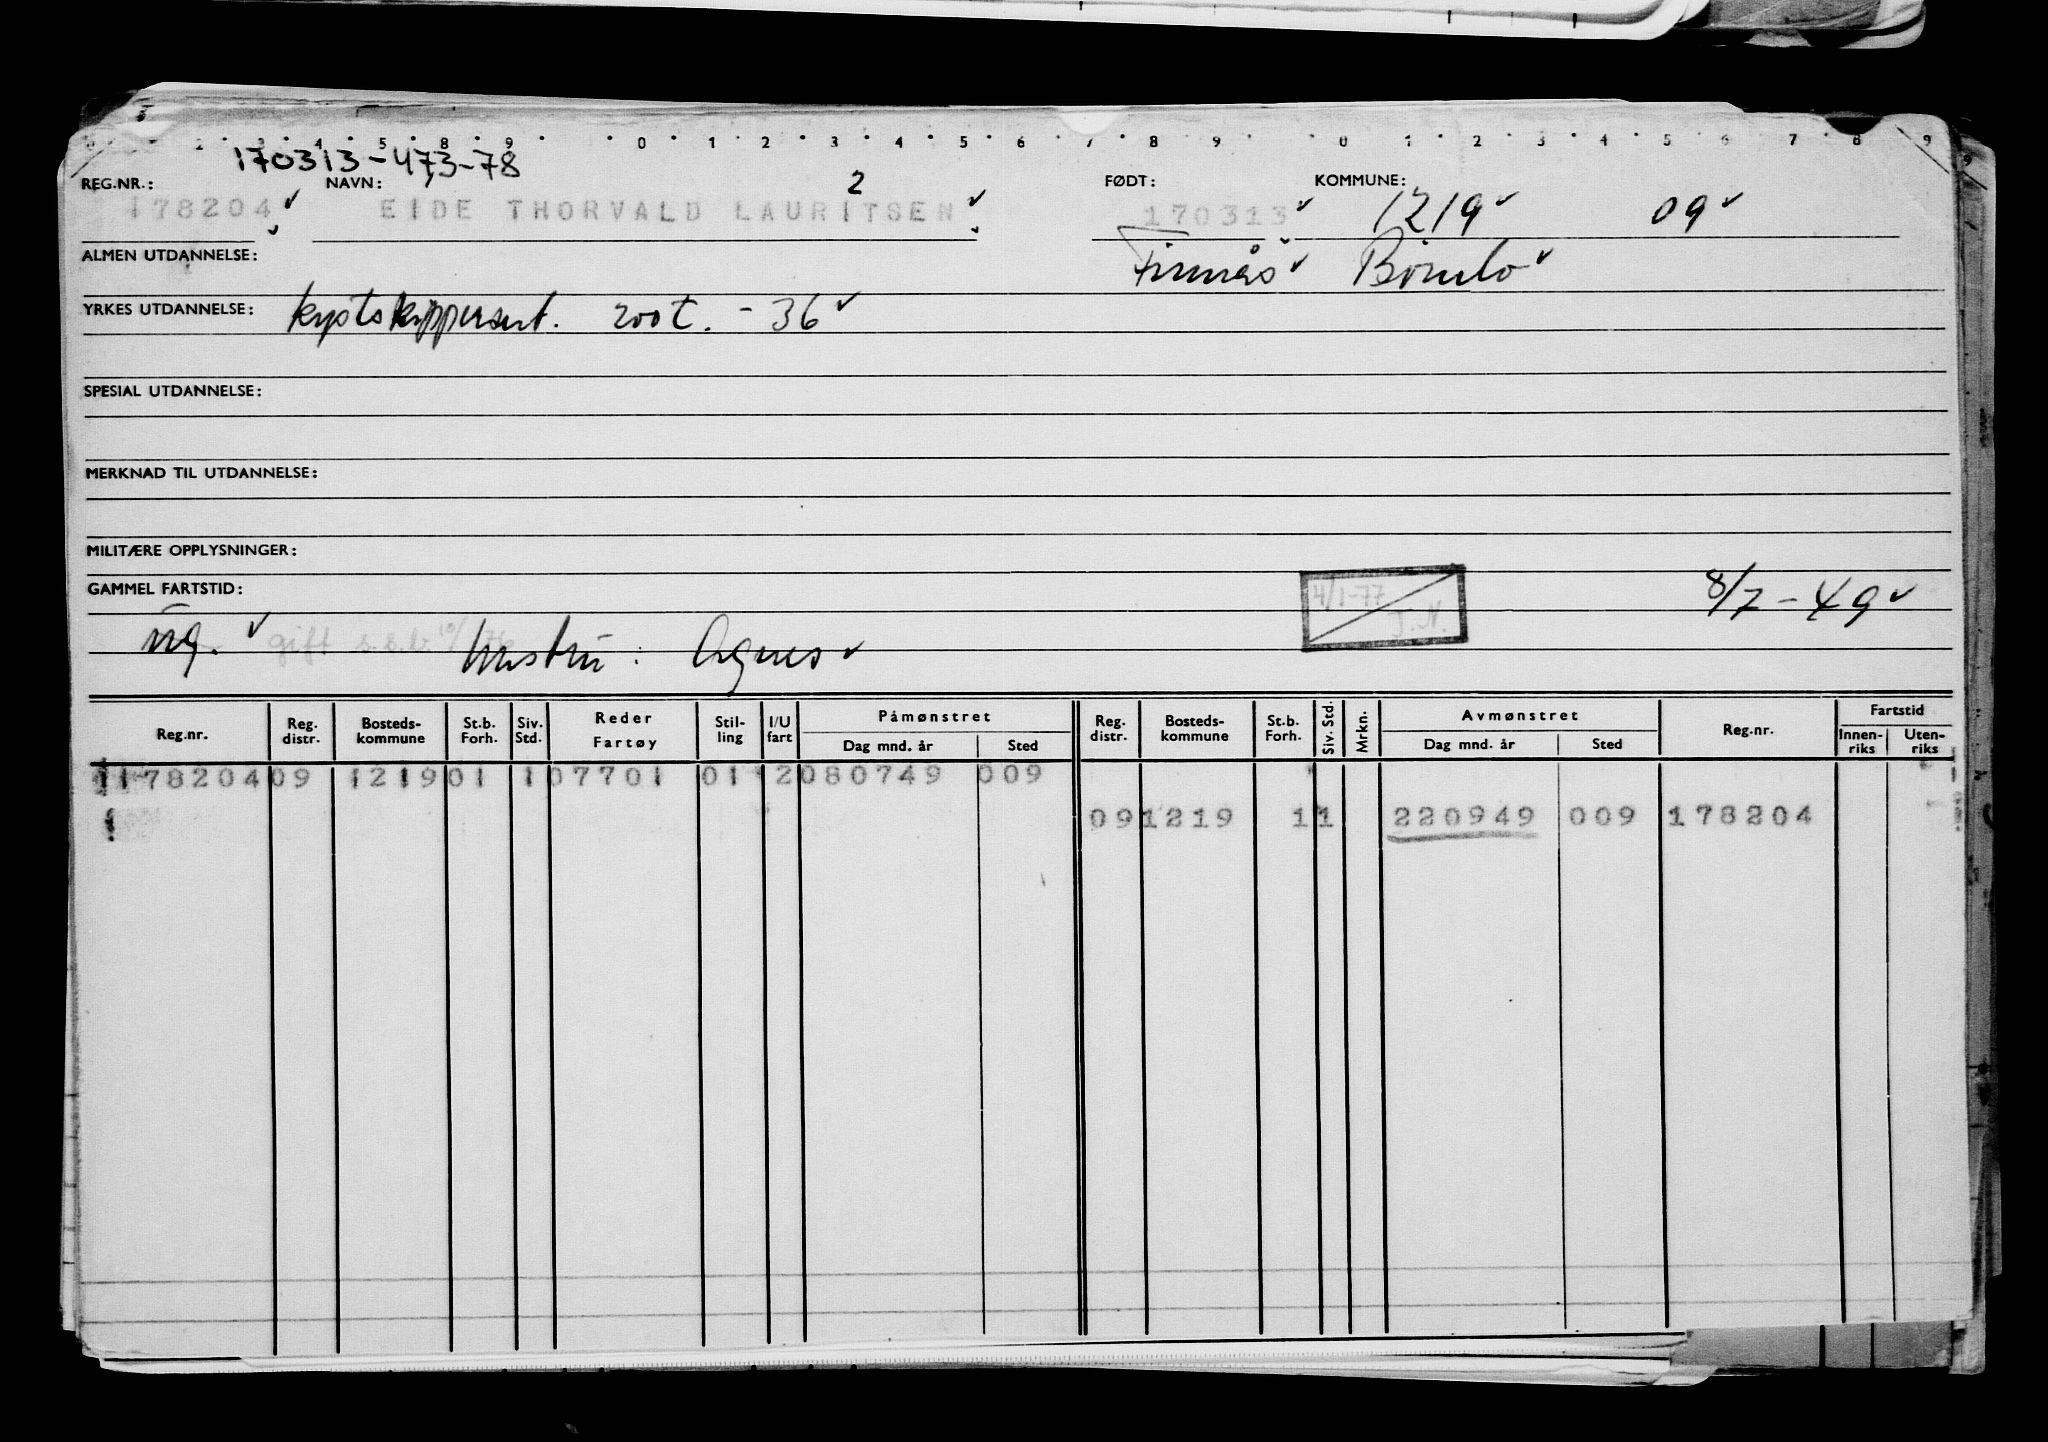 0 2 3 4 5 8 9 0 1 2 3 4 5 6 7 8 9 0 1 2 3 4 5 6 7 8 9
170313-473-78
REG.NR.: NAVN: 2 FØDT: KOMMUNE:
178204 EIDE THORVALD LAURITSEN 170313 1219 09
ALMEN UTDANNELSE: Finnås Bømlo
YRKES UTDANNELSE: kystskippersert. 200 t. - 36
SPESIAL UTDANNELSE:
MERKNAD TIL UTDANNELSE:
MILITÆRE OPPLYSNINGER:
GAMMEL FARTSTID: 4/1-77 8/7-49
J.N.
ug. gift s.s.b. Hustru: Agnes
Reg.nr. Reg. distr. Bosteds-kommune St.b. Forh. Siv. Std. Reder Fartøy Stil-ling I/U fart Påmønstret Dag mnd. år Sted Reg. distr. Bosteds-kommune St.b. Forh. Siv. Std. Mrkn. Avmønstret Dag mnd. år Sted Reg.nr. Fartstid Innen-riks Uten-riks
117820409 121901 107701 01 2080749 009
091219 11 220949 009 178204